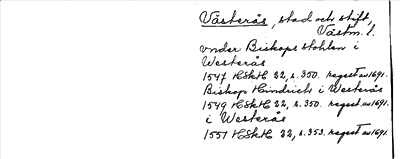 Västerås, stad och stift,
Västm. l.
vnder Biskops stohlen i
Westerås
1547 HSkH 22, s. 350. regest av 1691.
Biskop Hindrich i Westerås
1549 HSkH 22, s. 350. regest av 1691.
i Westerås
1551 HSkH 22, s. 353. regest av 1691.